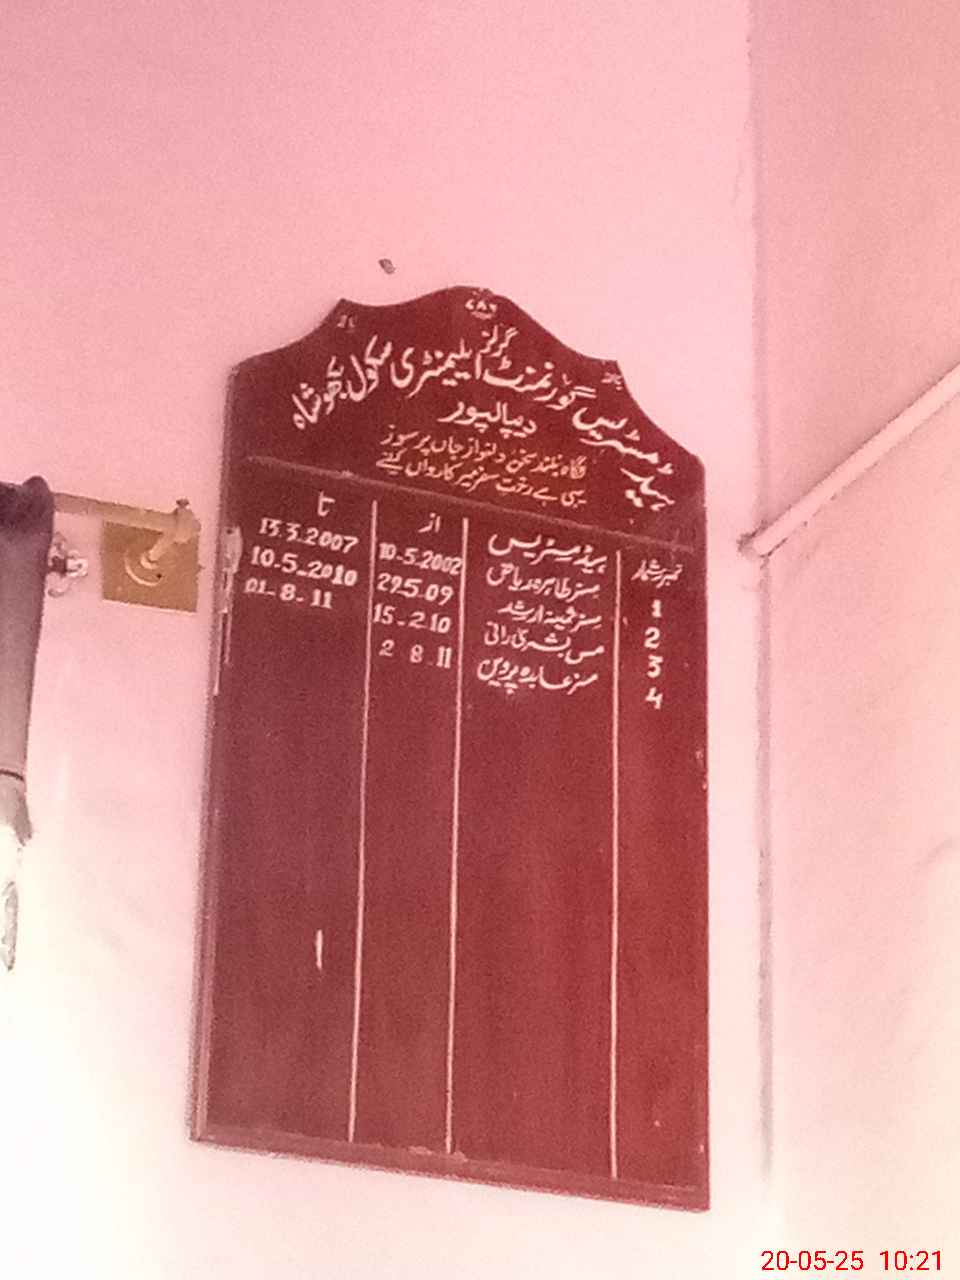 ۷۸۶
ہیڈ مسٹریس گورنمنٹ گرلز ایلیمنٹری سکول بھوشاہ
دیپالپور
نگاہ بلند سخن دلنواز جاں پر سوز
یہی ہے رخت سفر میر کارواں کیلئے
نمبر شمار ہیڈ مسٹریس از تا
1 مسز طاہرہ ریاض 10-5.2002 13.3.2007
2 مسز ثمینہ ارشد 29.5.09 10-5-2010
3 مس بشریٰ رانی 15-2-10 01-8-11
4 مسز عابدہ پروین 2 8.11
20-05-25 10:21